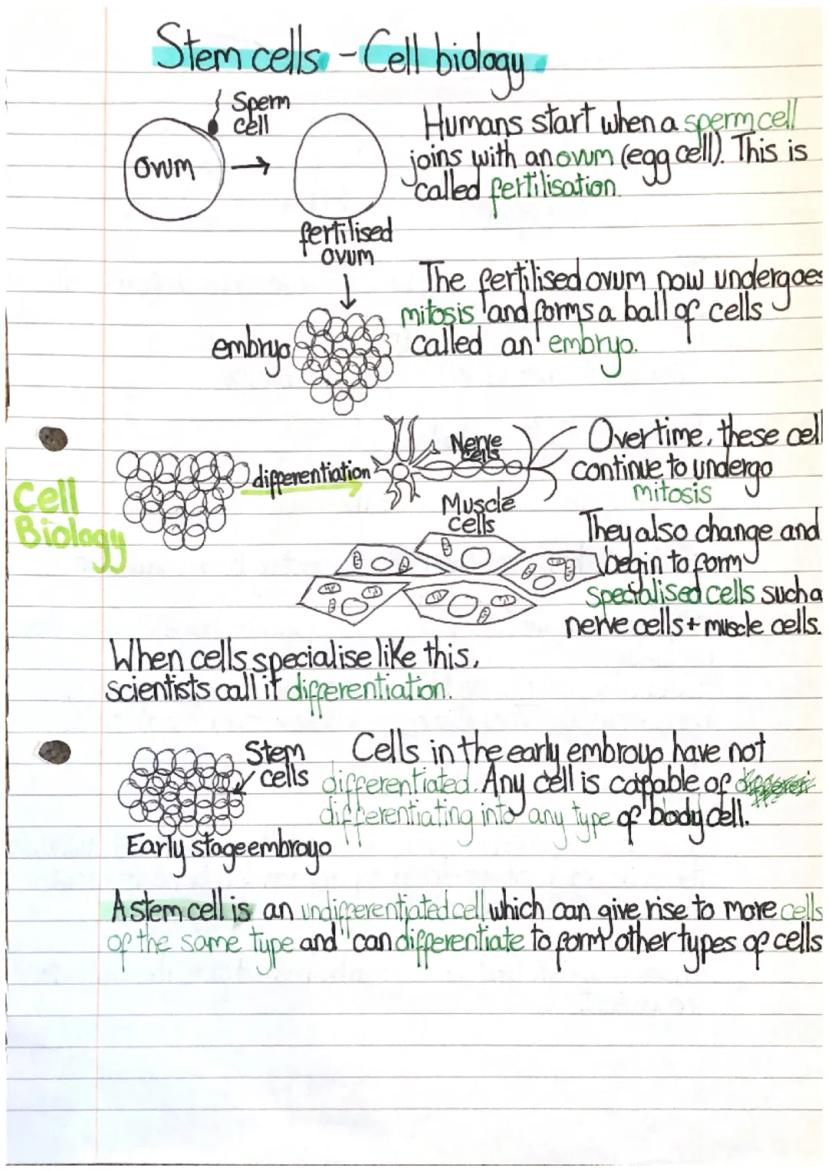 Stem cells - Cell biology
Sperm
cell
Ovum
fertilised
ovum
Humans start when a sperm cell
joins with an ovum (egg cell). This is
called fertilisation.
The fertilised ovum now undergoes
mitosis and forms a ball of cells
called an embryo.
embryo
differentiation
Nerve
cells
Muscle
cells
Cell
Biology
Overtime, these cell
continue to undergo
mitosis
They also change and
begin to form
specialised cells such a
nerve cells + muscle cells.
When cells specialise like this,
scientists call it differentiation.
Stem
cells
Early stage embroyo
Cells in the early embroyo have not
differentiated. Any cell is capable of
differentiating into any type of body cell.
A stem cell is an undifferentiated cell which can give rise to more cells
of the same type and can differentiate to form other types of cells